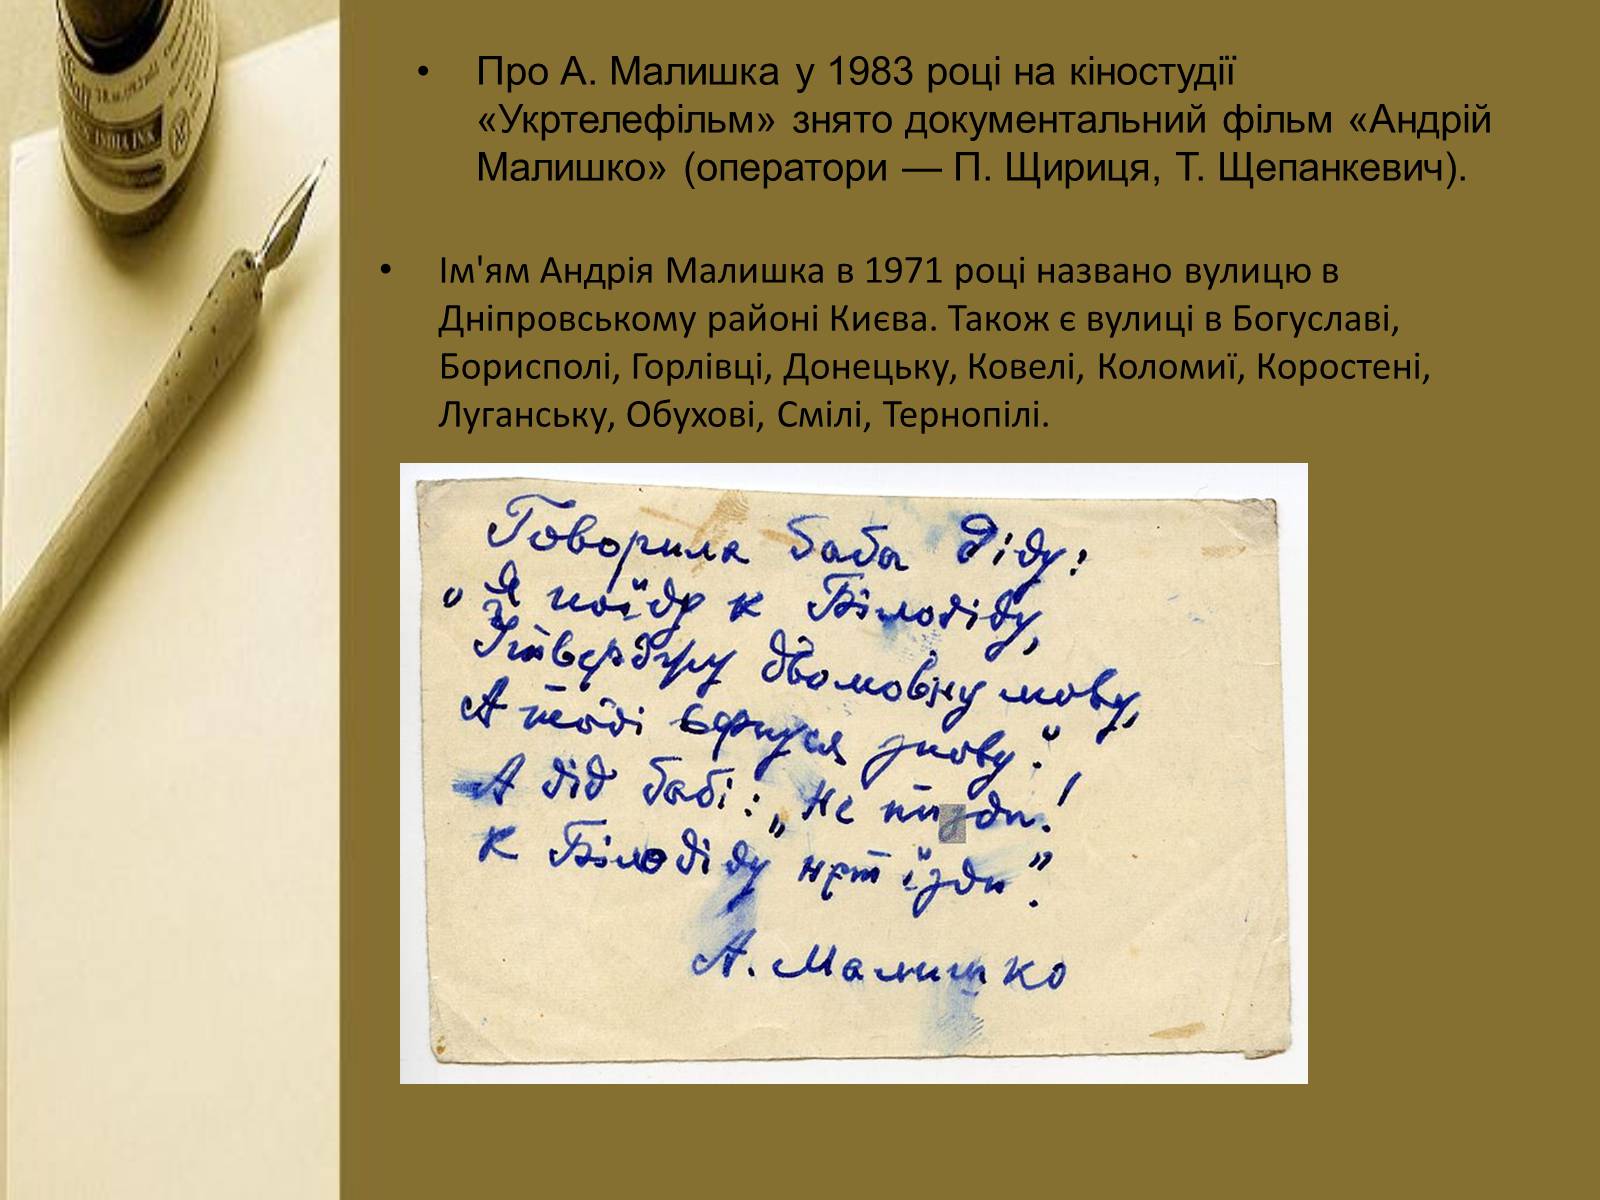 • Про А. Малишка у 1983 році на кіностудії
«Укртелефільм» знято документальний фільм «Андрій
Малишко» (оператори — П. Щириця, Т. Щепанкевич).
• Ім'ям Андрія Малишка в 1971 році названо вулицю в
Дніпровському районі Києва. Також є вулиці в Богуславі,
Борисполі, Горлівці, Донецьку, Ковелі, Коломиї, Коростені,
Луганську, Обухові, Смілі, Тернопілі.
Говорила баба діду:
„Я поїду к Білодіду,
Ствержу двомовну мову,
А тоді вернуся знову."
А дід бабі: „Не
К Білодіду нет їзди".
А. Малишко
INDIA INK